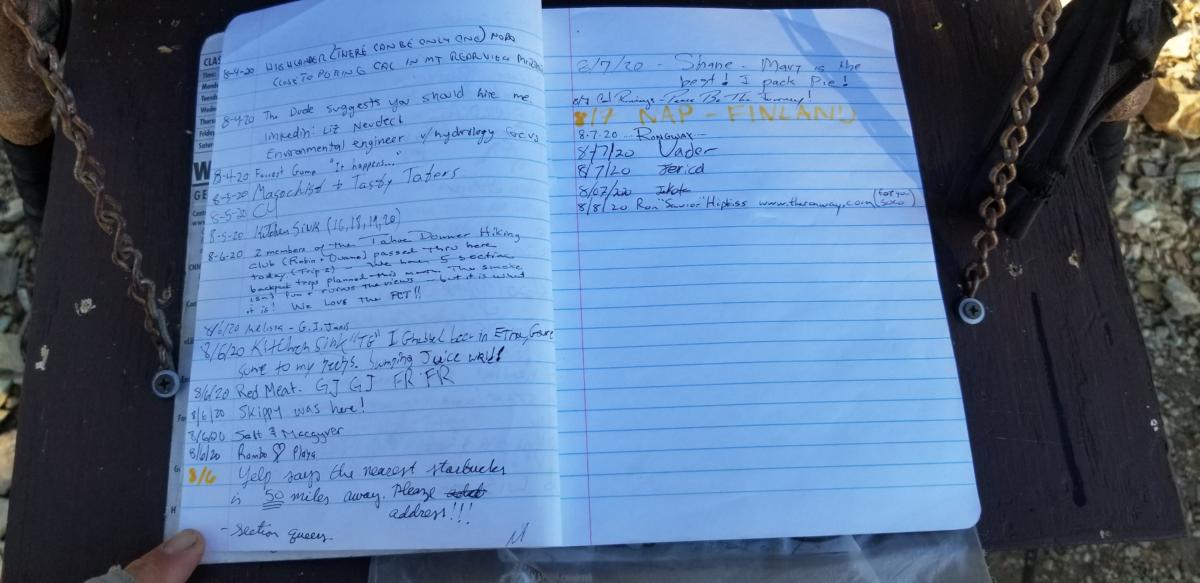 8-4-20 HIGHLANDER (THERE CAN BE ONLY ONE) NOBO
CLOSE TO PORING CAL IN MT REARVIEW
8-4-20 The Dude suggests you should hire me.
linkedin: Liz Neudeck
Environmental engineer w/ hydrology focus
8-4-20 Forrest Gump "It happens..."
8-5-20 Masochist + Tasty Taters
8-5-20 CJ
8-5-20 Kitchen Sink (16,18,19,20)
8-6-20 2 members of the Tahoe Donner Hiking
club (Robin + Duane) passed thru here
today (Trip 2) - We have 5 section
backpack trips planned this month. The smoke
isn't fun + ruins the views - but it is what
it is! We Love The PCT!!
8/6/20 Melissa - G.I. Janis
8/6/20 Kitchen Sink "TG" I Grabbed beer in Etna, Gave
some to my peeps. Jumping Juice
8/6/20 Red Meat. GJ GJ FR FR
8/6/20 Skippy was here!
8/6/20 Salt & Macgyver
8/6/20 Rambo ♡ Playa
8/6 Yelp says the nearest starbucks
is 50 miles away. Please
address!!!
- section queen
8/7/20 - Shane - Mary is the
best! I pack Pie!
8/7 Peace Be The Journey!
8/7 NAP - FINLAND
8-7-20 ... Rongwax
8/7/20 Vader
8/7/20 Jerico
8/07/20
8/8/20 Ron "Savior" Hipkiss www.theronway.com (for you SOBO)
CLAS
Time
Mond
Tuesd
Wedn
Thurs
Friday
Satur
W
GE